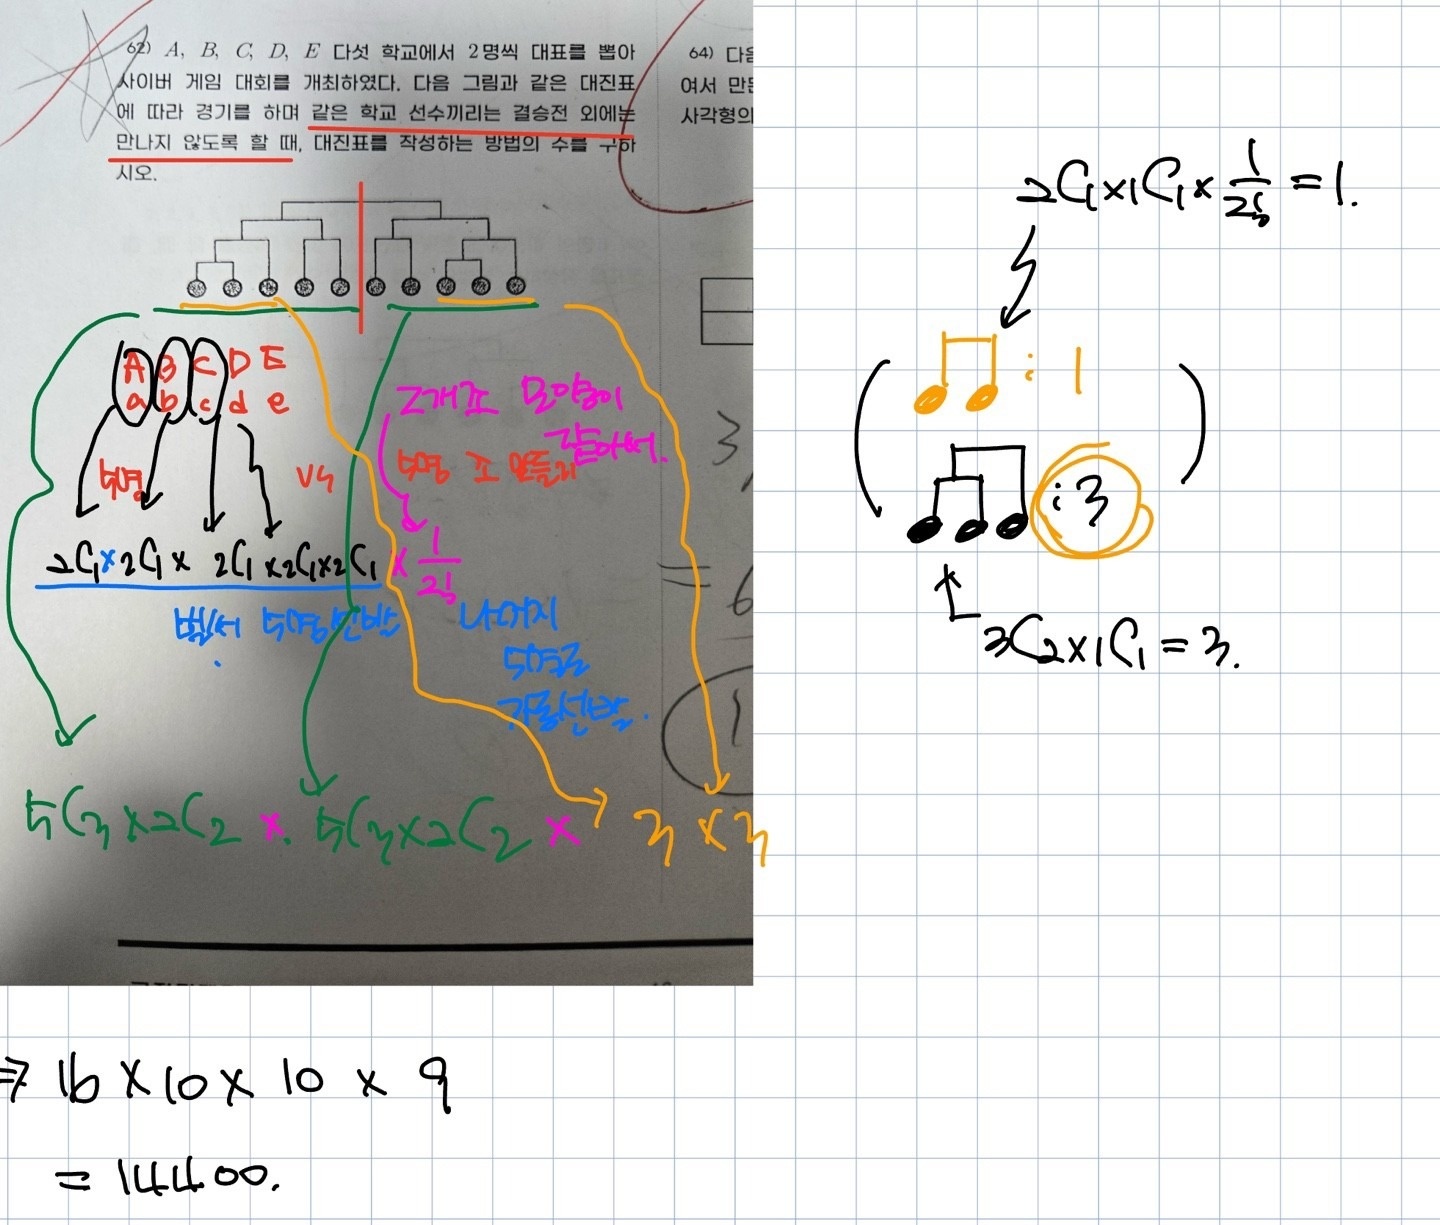 62) A, B, C, D, E 다섯 학교에서 2명씩 대표를 뽑아
사이버 게임 대회를 개최하였다. 다음 그림과 같은 대진표
에 따라 경기를 하며 같은 학교 선수끼리는 결승전 외에는
만나지 않도록 할 때, 대진표를 작성하는 방법의 수를 구하
시오.
64) 다음
여서 만든
사각형의
A B C D E
a b c d e
5명 vs 5명 조 만들기
2개조 모양이
같아서.
2C1×2C1×2C1×2C1×2C1 × 1/2!
벌써 5명선발
나머지
5명은
자동선발.
5C3×2C2 × 5C3×2C2 × 3×3
2C1×1C1×1/2! = 1.
: 1
: 3
3C2×1C1 = 3.
⇒ 16×10×10×9
= 14400.